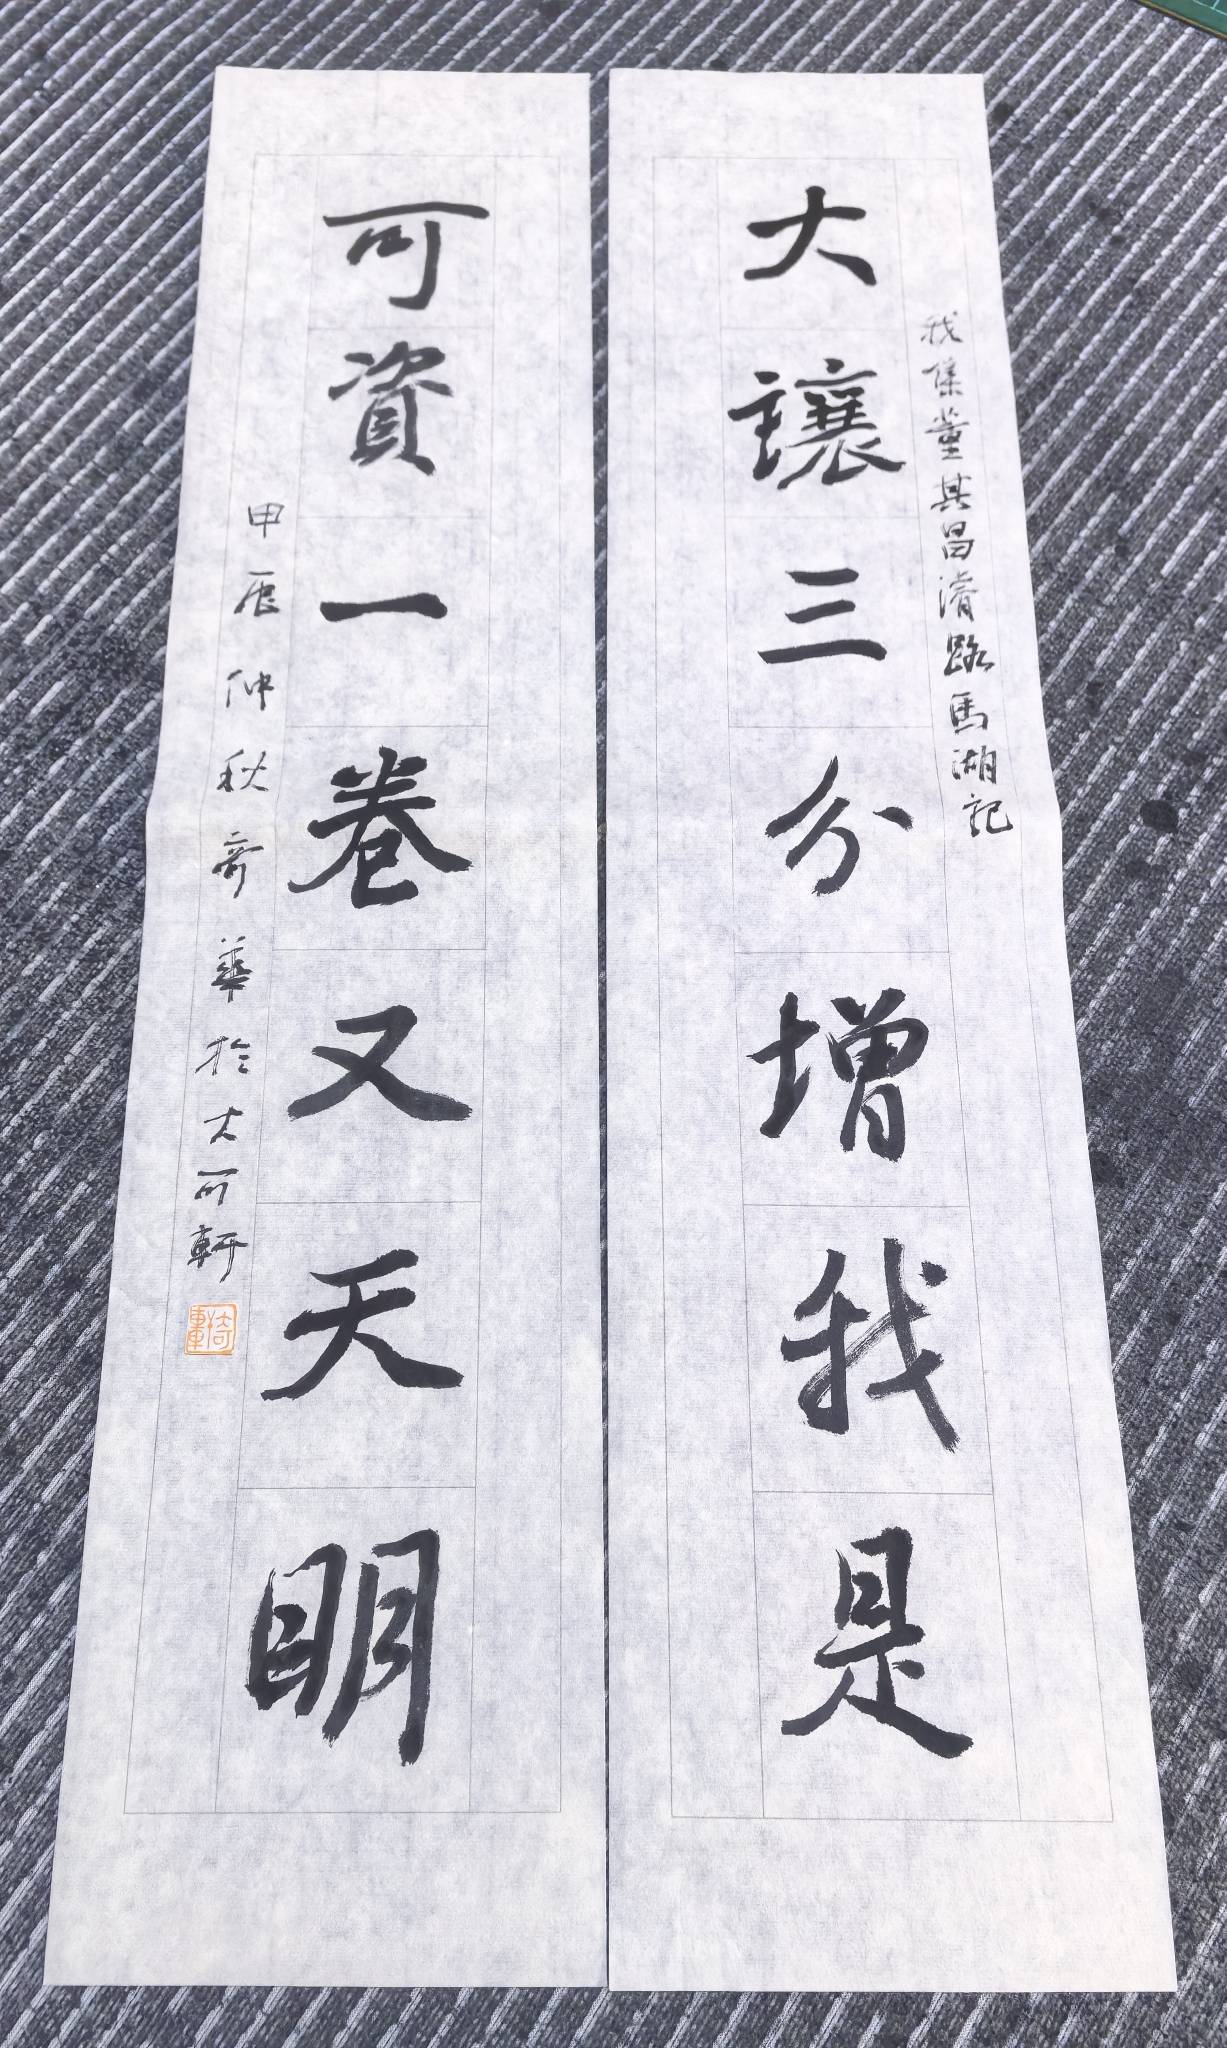 大讓三分增我是
我集董其昌濬路馬湖記
可資一卷又天明
甲辰仲秋奇華於大可軒